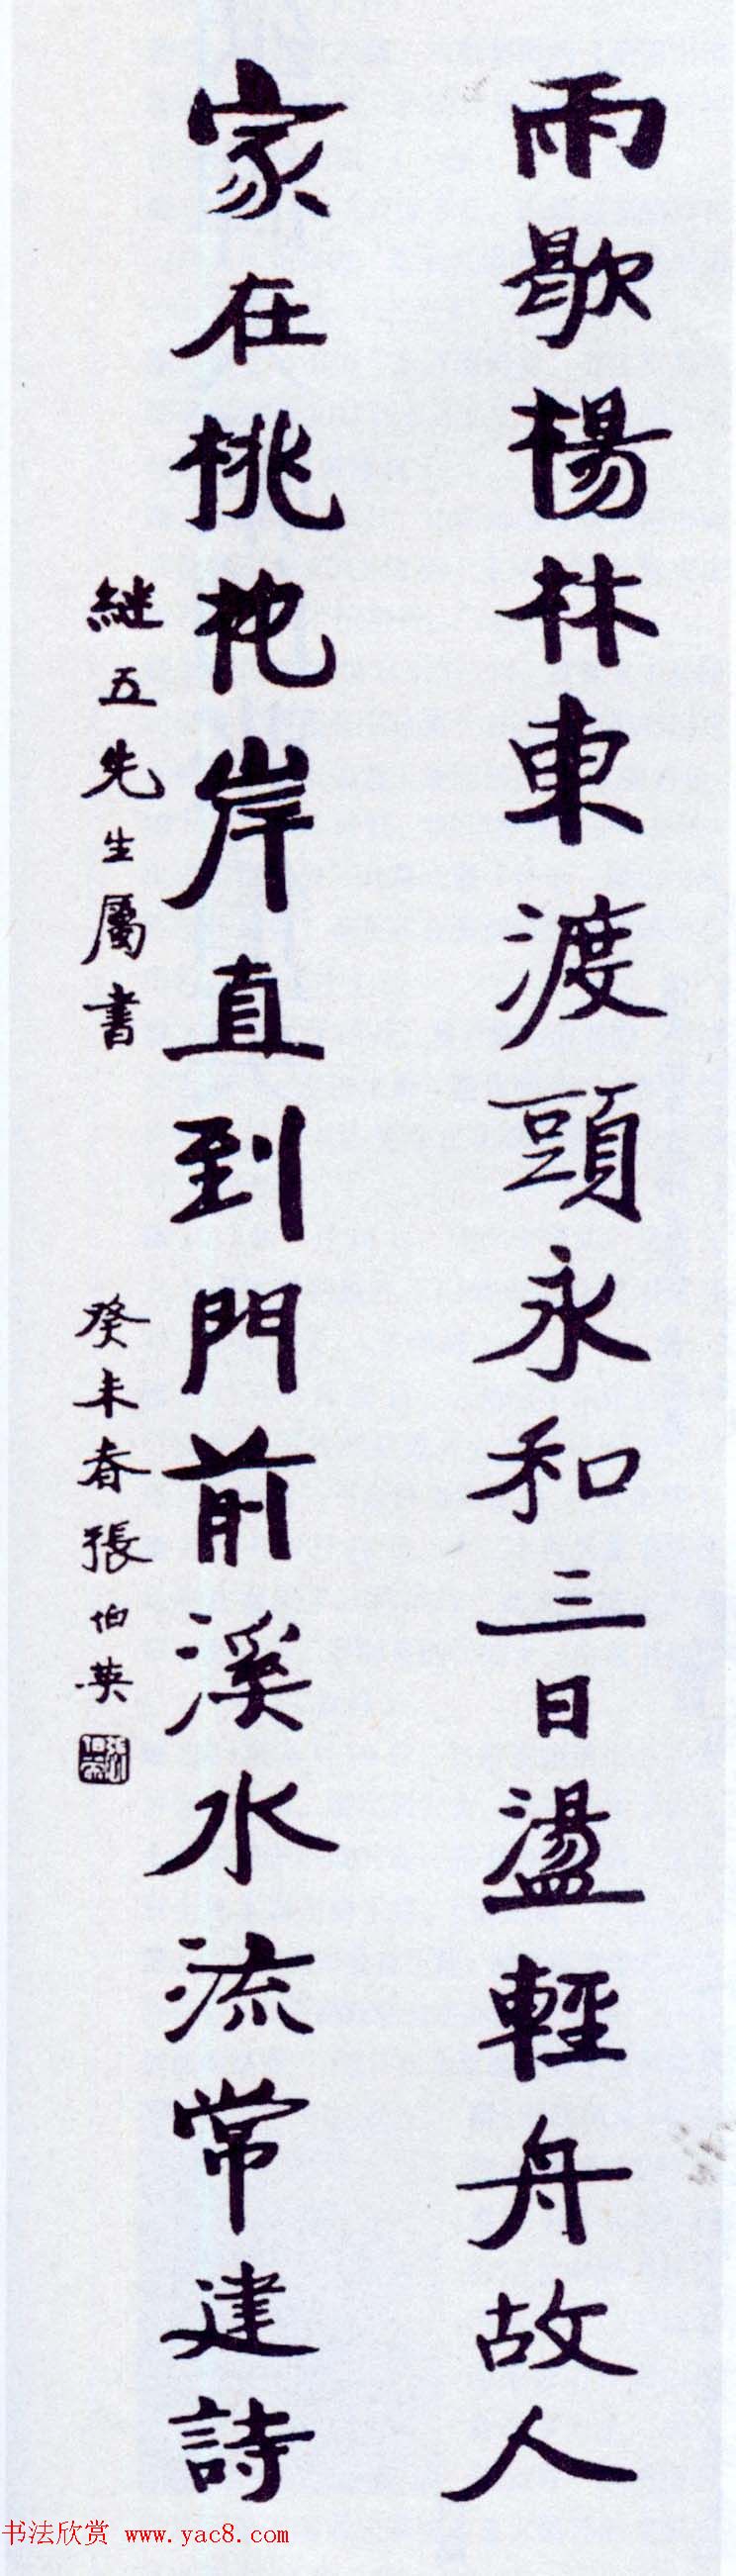 雨歇楊林東渡頭永和三日盪輕舟故人
家在桃花岸直到門前溪水流常建詩
継五先生屬書
癸未春張伯英
书法欣赏 www.yac8.com